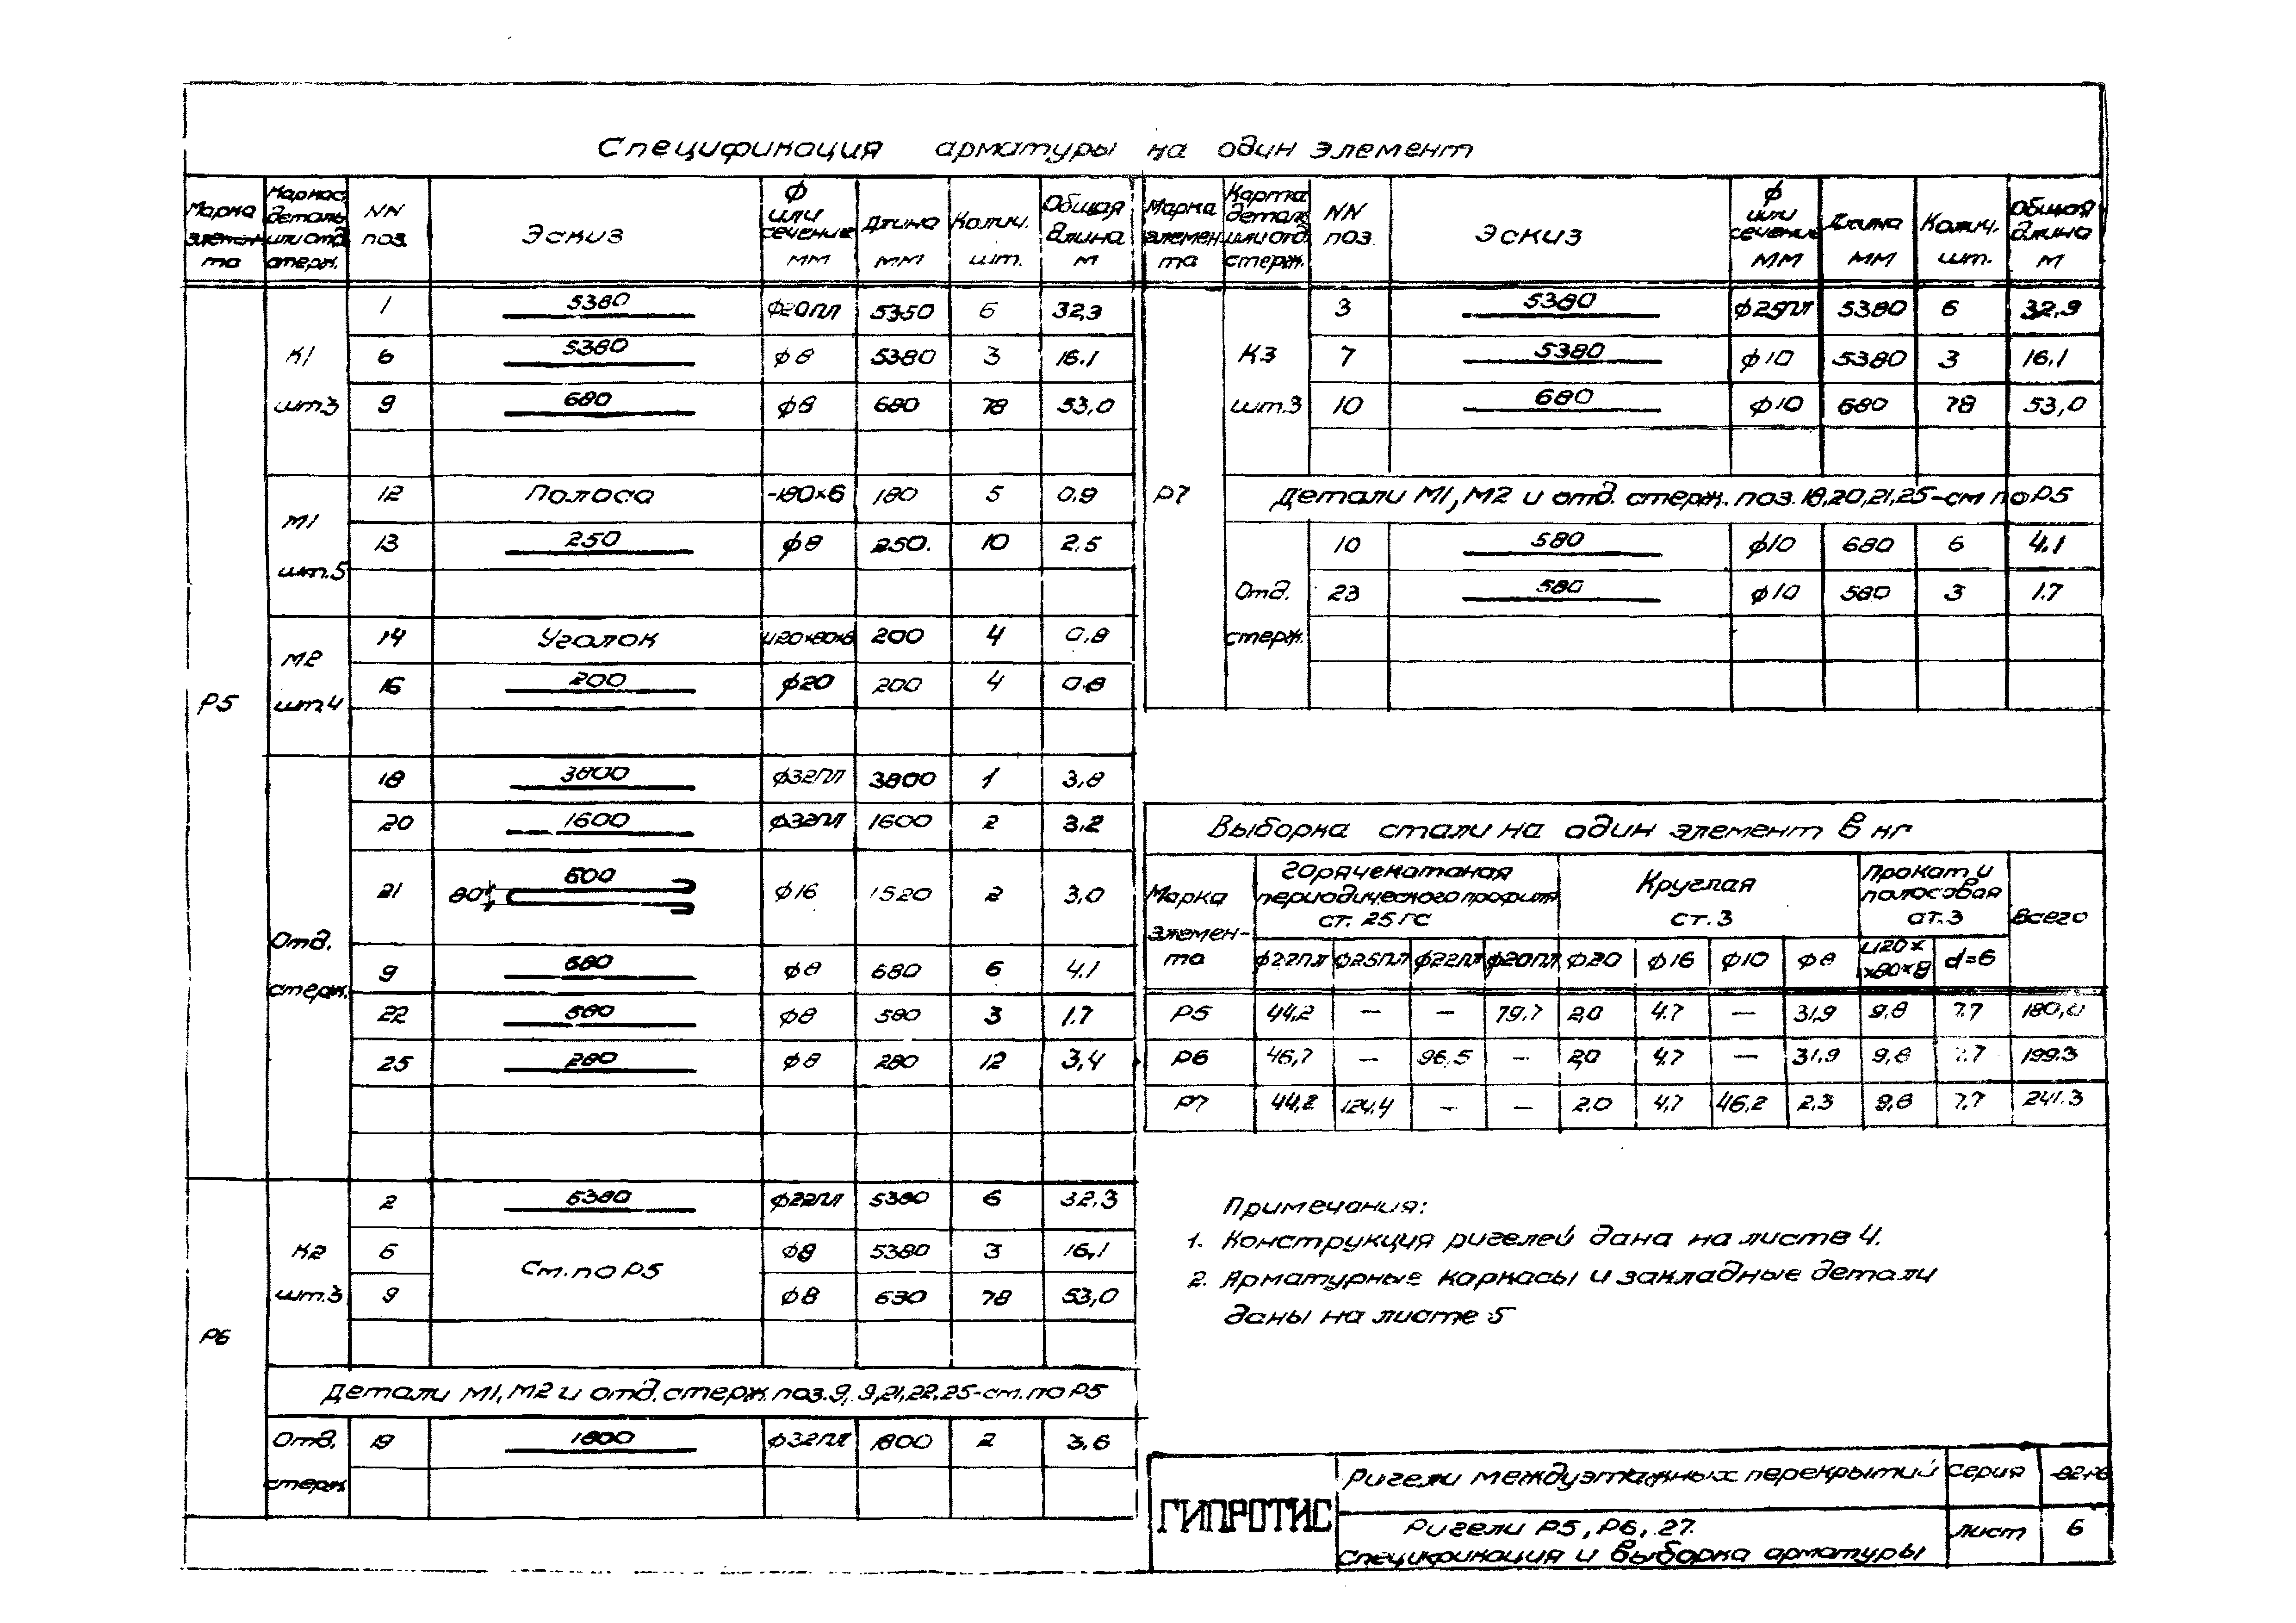 Спецификация арматуры на один элемент
Марка элемента | Каркас, деталь или отд. стерж. | NN поз. | Эскиз | Ф или сечение мм | Длина мм | Колич. шт. | Общая длина м
Р5
К1 шт.3
1 | 5380 | ф20пл | 5350 | 6 | 32,3
6 | 5380 | ф8 | 5380 | 3 | 16.1
9 | 680 | ф8 | 680 | 78 | 53,0
М1 шт.5
12 | Полоса | -180×6 | 180 | 5 | 0.9
13 | 250 | ф8 | 250. | 10 | 2.5
М2 шт.4
14 | Уголок | 200 | 4 | 0.8
16 | 200 | ф20 | 200 | 4 | 0.8
Отд. стерж.
18 | 3800 | ф32пл | 3800 | 1 | 3,8
20 | 1600 | ф32пл | 1600 | 2 | 3.2
21 | 80 | 600 | ф16 | 1520 | 2 | 3,0
9 | 680 | ф8 | 680 | 6 | 4.1
22 | 580 | ф8 | 580 | 3 | 1.7
25 | 280 | ф8 | 280 | 12 | 3,4
Р6
К2 шт.3
2 | 5380 | ф22пл | 5380 | 6 | 32.3
6 | См. по Р5 | ф8 | 5380 | 3 | 16,1
9 | ф8 | 630 | 78 | 53,0
Детали М1, М2 и отд. стерж. поз. 9, 9,21,22,25-см. по Р5
Отд. стерж
19 | 1800 | ф32пл | 1800 | 2 | 3,6
Марка элемента | Картка деталь или отд. стерж. | NN поз. | Эскиз | ф или сечение мм | Длина мм | Колич. шт. | Общая длина м
Р7
К3 шт.3
3 | 5380 | ф25пл | 5380 | 6 | 32,9
7 | 5380 | ф10 | 5380 | 3 | 16.1
10 | 680 | ф10 | 680 | 78 | 53,0
Детали М1, М2 и отд. стерж. поз. 18,20,21,25-см по Р5
Отд. стерж.
10 | 580 | ф10 | 680 | 6 | 4.1
23 | 580 | ф10 | 580 | 3 | 1.7
Выборка стали на один элемент в кг
Марка элемента | Горячекатаная периодического профиля ст. 25ГС | Круглая ст. 3 | Прокат и полосовая ст. 3 | Всего
ф22пл | ф25пл | ф22пл | ф20пл | ф20 | ф16 | ф10 | ф8 | L120××80×8 | d=6
Р5 | 44,2 | — | — | 79.7 | 2,0 | 4.7 | — | 31,9 | 9,8 | 7.7 | 180,0
Р6 | 46,7 | — | 96,5 | — | 2,0 | 4,7 | — | 31.9 | 9,8 | 7.7 | 199.3
Р7 | 44,2 | 124,4 | — | — | 2.0 | 4,7 | 46,2 | 2.3 | 9,8 | 7,7 | 241.3
Примечания:
1. Конструкция ригелей дана на листе 4.
2. Арматурные каркасы и закладные детали
даны на листе 5
ГИПРОТИС
Ригели междуэтажных перекрытий
Серия
Ригели Р5, Р6, 27.
Спецификация и выборка арматуры
лист 6